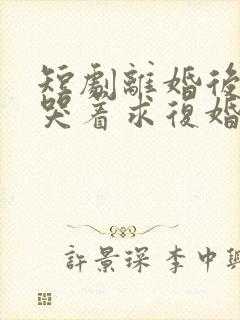 短劇離婚後
哭着求復婚
許景琛李中興